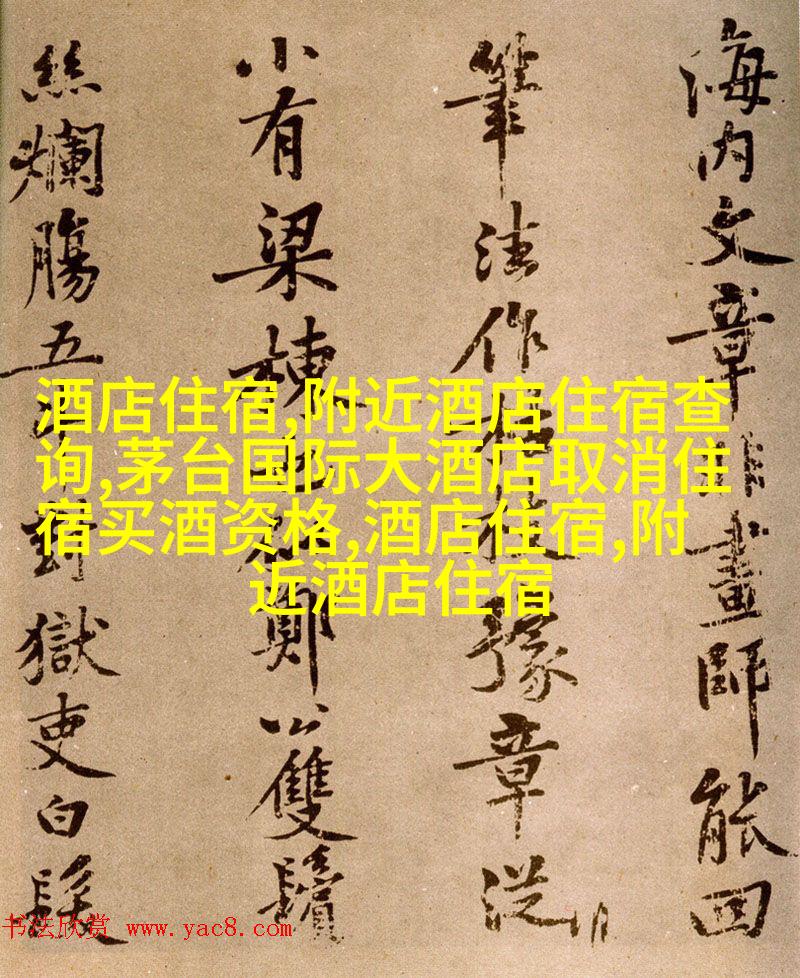 海内文章非畫師能回
筆法作枯枝豫章從
小有梁棟鄭公雙鬢
絲爛腸五斗對獄吏白髮
酒店住宿,附近酒店住宿查
询,茅台国际大酒店取消住
宿买酒资格,酒店住宿,附
近酒店住宿
书法欣赏 www.yac8.com